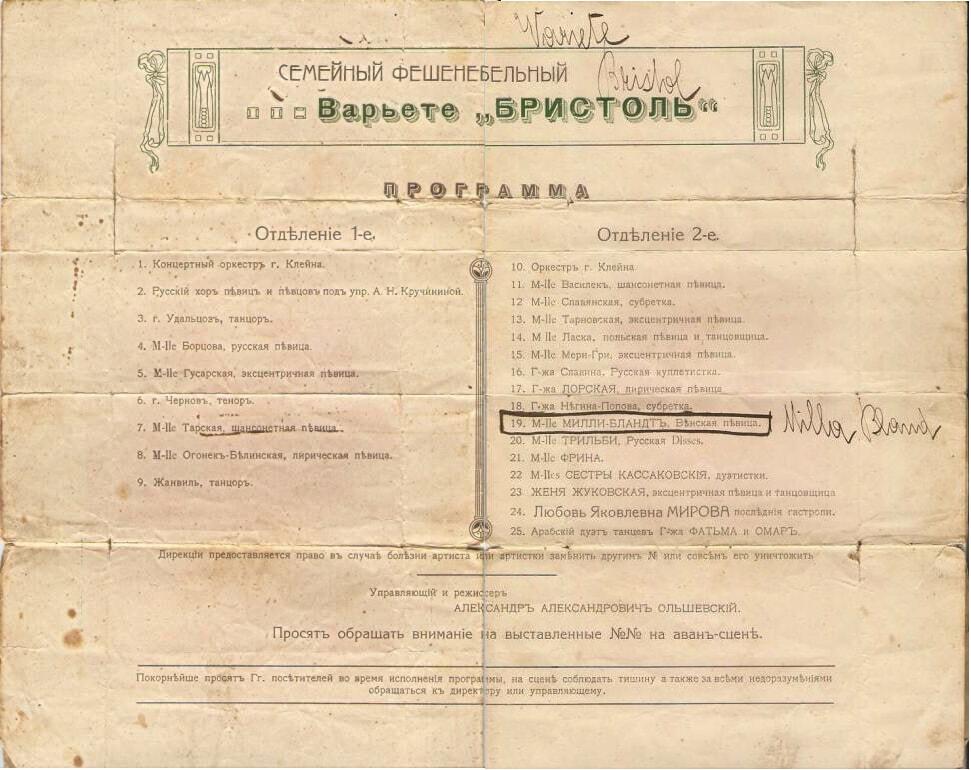 Variete
Bristol
СЕМЕЙНЫЙ ФЕШЕНЕБЕЛЬНЫЙ
Варьете „БРИСТОЛЬ“
ПРОГРАММА
Отдѣленіе 1-е.
1. Концертный оркестръ г. Клейна.
2. Русскій хоръ пѣвицъ и пѣвцовъ подъ упр. А. Н. Кручининой.
3. г. Удальцовъ, танцоръ.
4. М-lle Борцова, русская пѣвица.
5. М-lle Гусарская, эксцентричная пѣвица.
6. г. Черновъ, теноръ.
7. М-lle Тарская, шансонетная пѣвица.
8. М-lle Огонекъ-Бѣлинская, лирическая пѣвица.
9. Жанвиль, танцоръ.
Отдѣленіе 2-е.
10. Оркестръ г. Клейна
11. М-lle Василекъ, шансонетная пѣвица.
12 М-lle Славянская, субретка.
13. М-lle Тарновская, эксцентричная пѣвица.
14. М lle Ласка, польская пѣвица и танцовщица.
15. М-lle Мери-Гри, эксцентричная пѣвица.
16. Г-жа Славина, Русская куплетистка.
17. Г-жа ЛОРСКАЯ, лирическая пѣвица
18. Г-жа Нѣгина-Попова, субретка.
19. М-lle МИЛЛИ-БЛАНДТЪ, Вѣнская пѣвица.
Milla Bland
20. М-lle ТРИЛЬБИ, Русская Dises.
21. М-lle ФРИНА.
22 М-lles СЕСТРЫ КАССАКОВСКІЯ, дуэтистки.
23 ЖЕНЯ ЖУКОВСКАЯ, эксцентричная пѣвица и танцовщица
24. Любовь Яковлевна МИРОВА послѣднія гастроли.
25. Арабскій дуэтъ танцевъ Г-жа ФАТЬМА и ОМАРЪ.
Дирекціи предоставляется право въ случаѣ болѣзни артиста или артистки замѣнить другимъ № или совсѣмъ его уничтожить
Управляющій и режиссеръ
АЛЕКСАНДРЪ АЛЕКСАНДРОВИЧЪ ОЛЬШЕВСКІЙ.
Просятъ обращать вниманіе на выставленные №№ на аванъ-сценѣ.
Покорнѣйше просятъ Гг. посѣтителей во время исполненія программы, на сценѣ соблюдать тишину а также за всѣми недоразумѣніями
обращаться къ директору или управляющему.